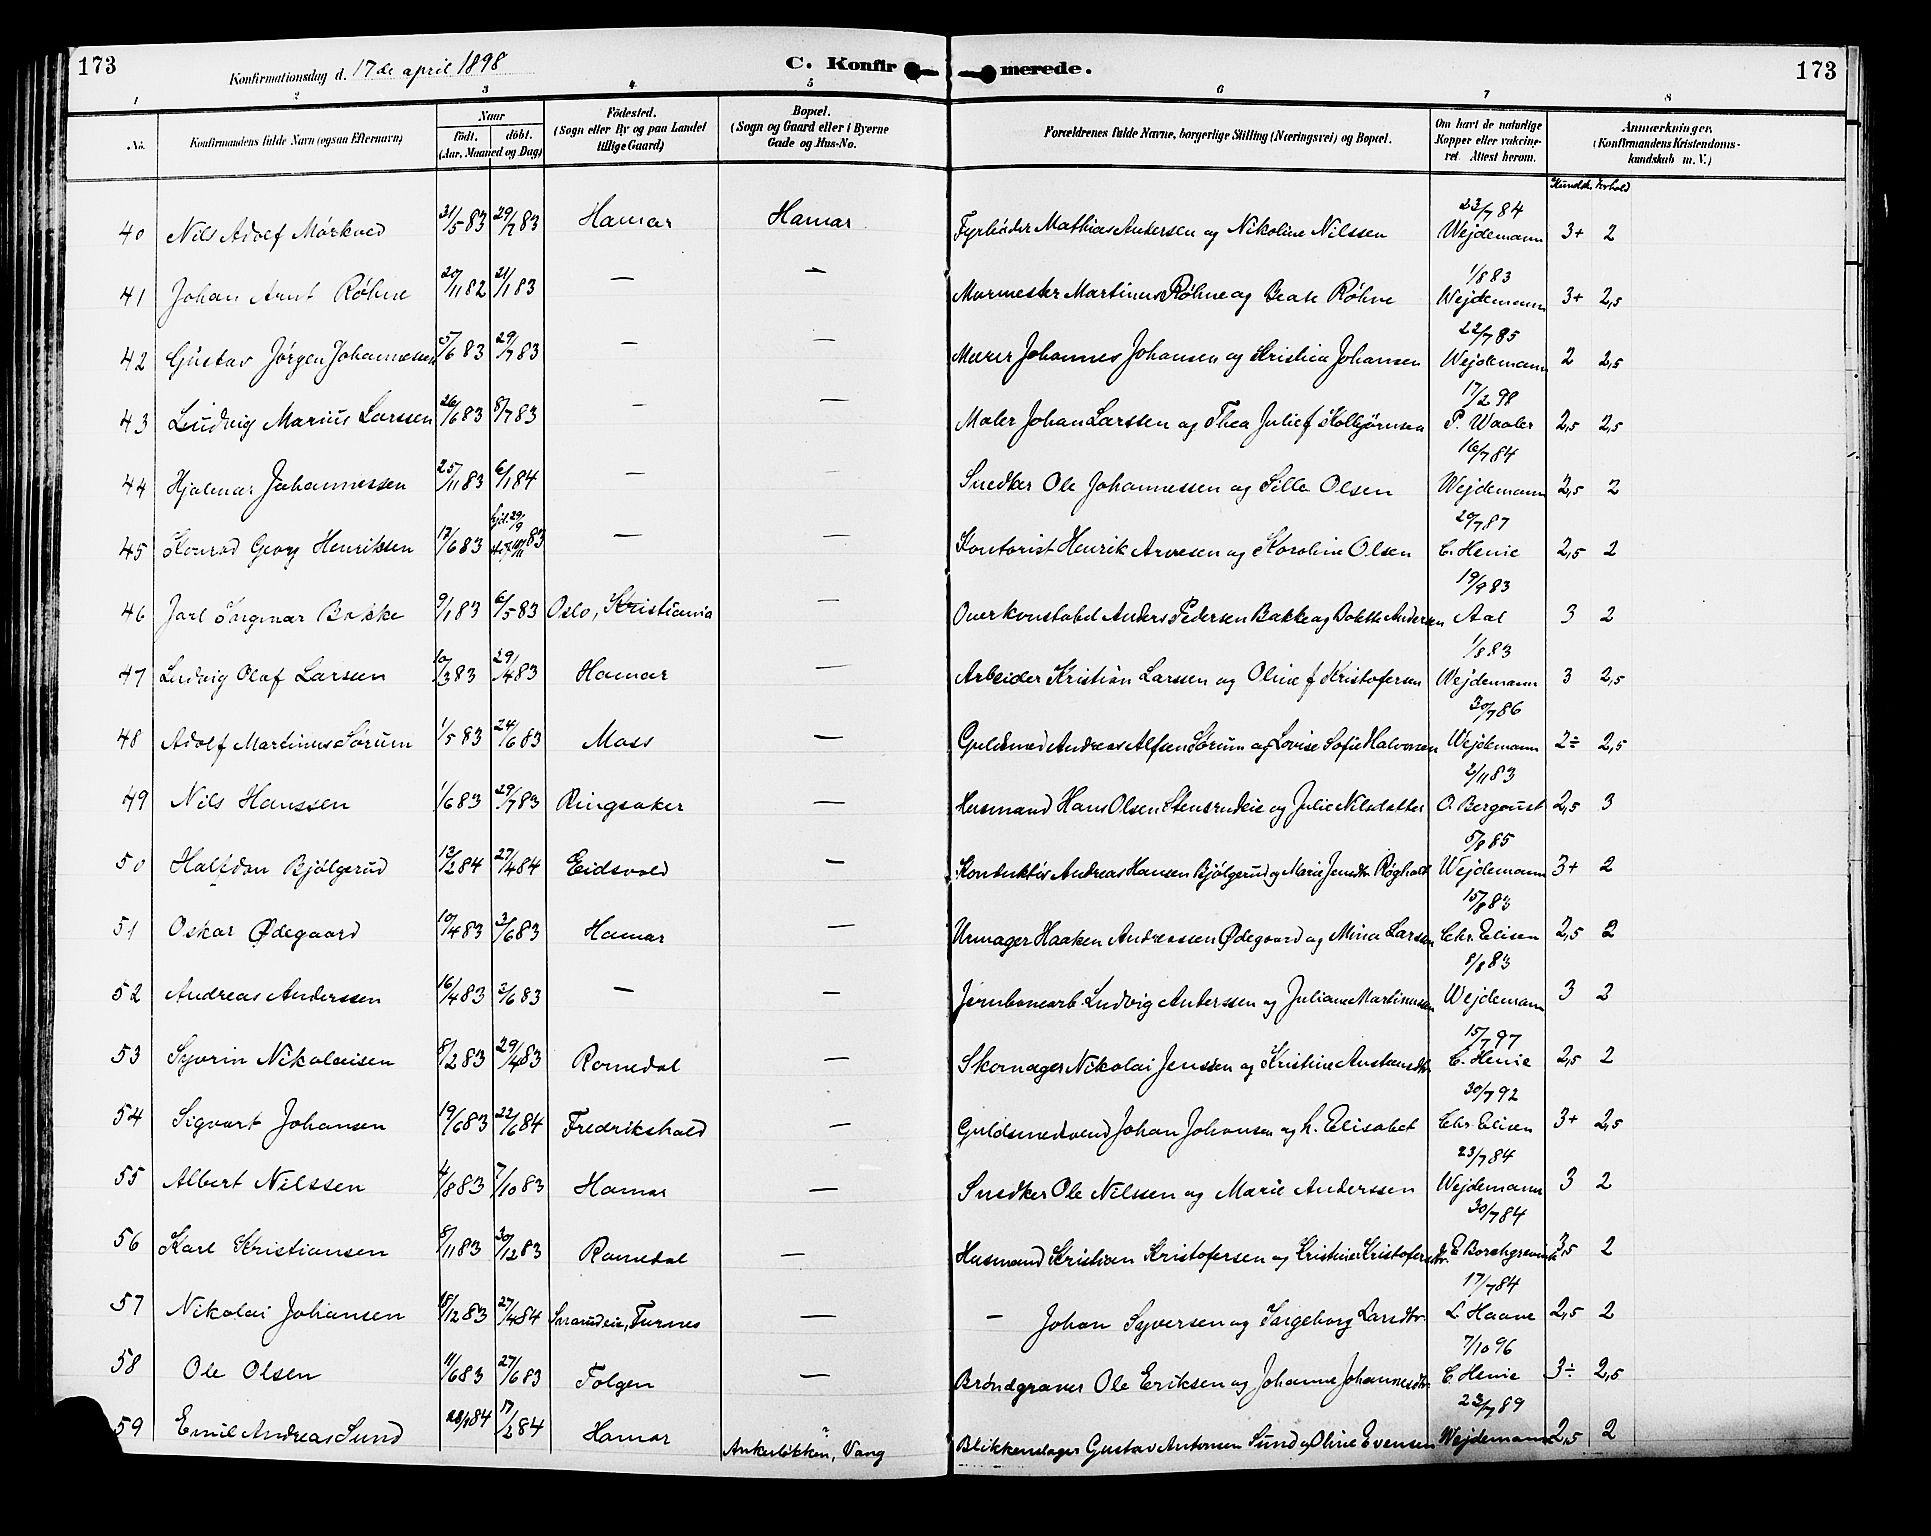 173
Konfirmationsdag d. 17de april 1898
C. Konfirmerede.
173
1 2 3 4 5 6 7 8
No.
Konfirmandens fulde Navn (ogsaa Efternavn)
Naar
födt. döbt.
(Aar, Maaned og Dag)
Födested.
(Sogn eller By og paa Landet
tillige Gaard)
Bopæl.
(Sogn og Gaard eller i Byerne
Gade og Hus-No.
Forældrenes fulde Navne, borgerlige Stilling (Næringsvei) og Bopæl.
Om havt de naturlige
Kopper eller vakcine-
ret Attest herom.
Anmærkninger.
(Konfirmandens Kristendoms-
kundskab m. V.)
Kundsk. Forhold
40 Nils Adolf Mørkved 31/5 83 29/7 83 Hamar Hamar Fyrbøder Mathias Andersen og Nikoline Nilssen 23/7 84 Wejdemann 3+ 2
41 Johan Arnt Røhne 20/11 82 21/1 83 — — Murmester Martinus Røhne og Beate Røhne 1/8 83 Wejdemann 3+ 2,5
42 Gustav Jørgen Johannesen 5/6 83 29/7 83 — — Murer Johannes Johansen og Kristine Johansen 22/7 85 Wejdemann 2 2,5
43 Ludvig Marius Larssen 26/6 83 8/7 83 — — Maler Johan Larssen og Thea Julie f Kolbjørnsen 17/2 98 P. Waaler 2,5 2,5
44 Hjalmar Johannessen 25/11 83 6/1 84 — — Snedker Ole Johannessen og Sille Olsen 16/7 84 Wejdemann 2,5 2
45 Konrad Georg Henriksen 17/6 83 hjd. 29/9 83 — — Kontorist Henrik Arnesen og Karoline Olsen 20/7 87 C. Henie 2,5 2
46 Jarl Ingmar Bakke 9/1 83 6/5 83 Oslo, Kristiania — Overkonstabel Anders Pedersen Bakke og Bolette Andersen 19/9 83 Aal 3 2
47 Ludvig Olaf Larsen 10/3 83 29/4 83 Hamar — Arbeider Kristian Larssen og Oline f Kristofersen 1/8 83 Wejdemann 3 2,5
48 Adolf Martinus Sørum 1/5 83 24/6 83 Moss — Guldsmed Andreas Alfsen Sørum og Lovise Sofie Halvorsen 30/7 86 Wejdemann 2÷ 2,5
49 Nils Hanssen 1/6 83 29/7 83 Ringsaker — Husmand Hans Olsen Stensrudeie og Julie Nilsdatter 2/11 83 O. Bergquist 2,5 3
50 Halfdan Bjølgerud 13/2 84 27/4 84 Eidsvold — Konduktør Andreas Hansen Bjølgerud og Marie Jensdtr Røgholt 5/8 85 Wejdemann 3+ 2
51 Oskar Ødegaard 10/4 83 3/6 83 Hamar — Urmager Haaken Andreassen Ødegaard og Mina Larsen 15/8 83 Chr. Elisen 2,5 2
52 Andreas Anderssen 16/4 83 3/6 83 — — Jernbanearb. Ludvig Anderssen og Juliane Martinussen 8/8 83 Wejdemann 3 2
53 Syverin Nikolaisen 8/2 83 29/4 83 Romedal — Skomager Nikolai Jenssen og Kristine Amundsdtr 15/7 97 C. Henie 2,5 2
54 Sigvart Johansen 19/6 83 22/6 84 Fredrikshald — Guldsmedsvend Johan Johansen og h. Elisabet 30/7 92 Chr. Elisen 3+ 2,5
55 Albert Nilssen 4/8 83 7/10 83 Hamar — Snedker Ole Nilssen og Marie Anderssen 23/7 84 Wejdemann 3 2
56 Karl Kristiansen 8/11 83 30/12 83 Romedal — Husmand Kristian Kristofersen og Kristine Kristofersdtr. 30/7 84 E Borchgrevink 3,5 2
57 Nikolai Johansen 18/12 83 27/4 84 Furnes — — Johan Syversen og Ingeborg Larsdtr. 17/7 84 L Haave 2,5 2
58 Ole Olsen 11/6 83 27/6 83 Tolgen — Brøndgraver Ole Eriksen og Johanne Johannesdtr 7/10 96 C. Henie 3÷ 2,5
59 Emil Andreas Sund 28/1 84 17/2 84 Hamar " Ankerløkken, Vang Blikkenslager Gustav Antonsen Sund og Oline Evensen 23/7 89 Wejdemann 2,5 2